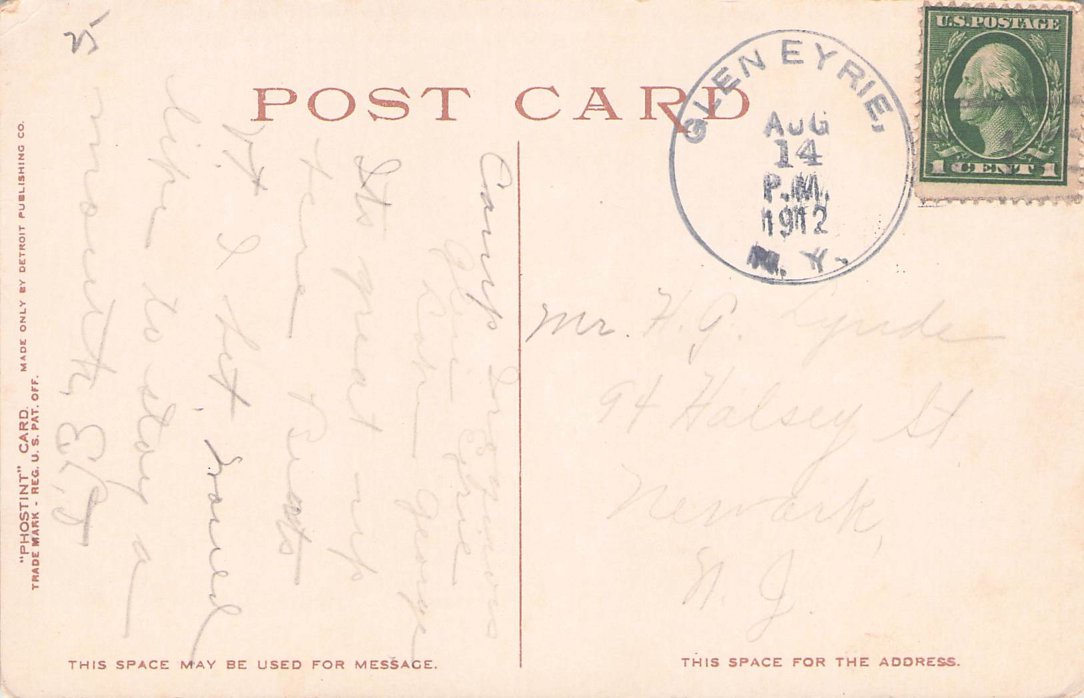 25
POST CARD
GLEN EYRIE,
AUG
14
P.M.
1912
N. Y.
U.S. POSTAGE
1 CENT 1
Camp Iroquois
Glen Eyrie
Lake George
Its great up
here Beats
it I bet would
like to stay a
month
Mr. H. G. Lynde
94 Halsey St
Newark,
N. J.
"PHOSTINT" CARD. MADE ONLY BY DETROIT PUBLISHING CO.
TRADE MARK - REG. U. S. PAT. OFF.
THIS SPACE MAY BE USED FOR MESSAGE.
THIS SPACE FOR THE ADDRESS.